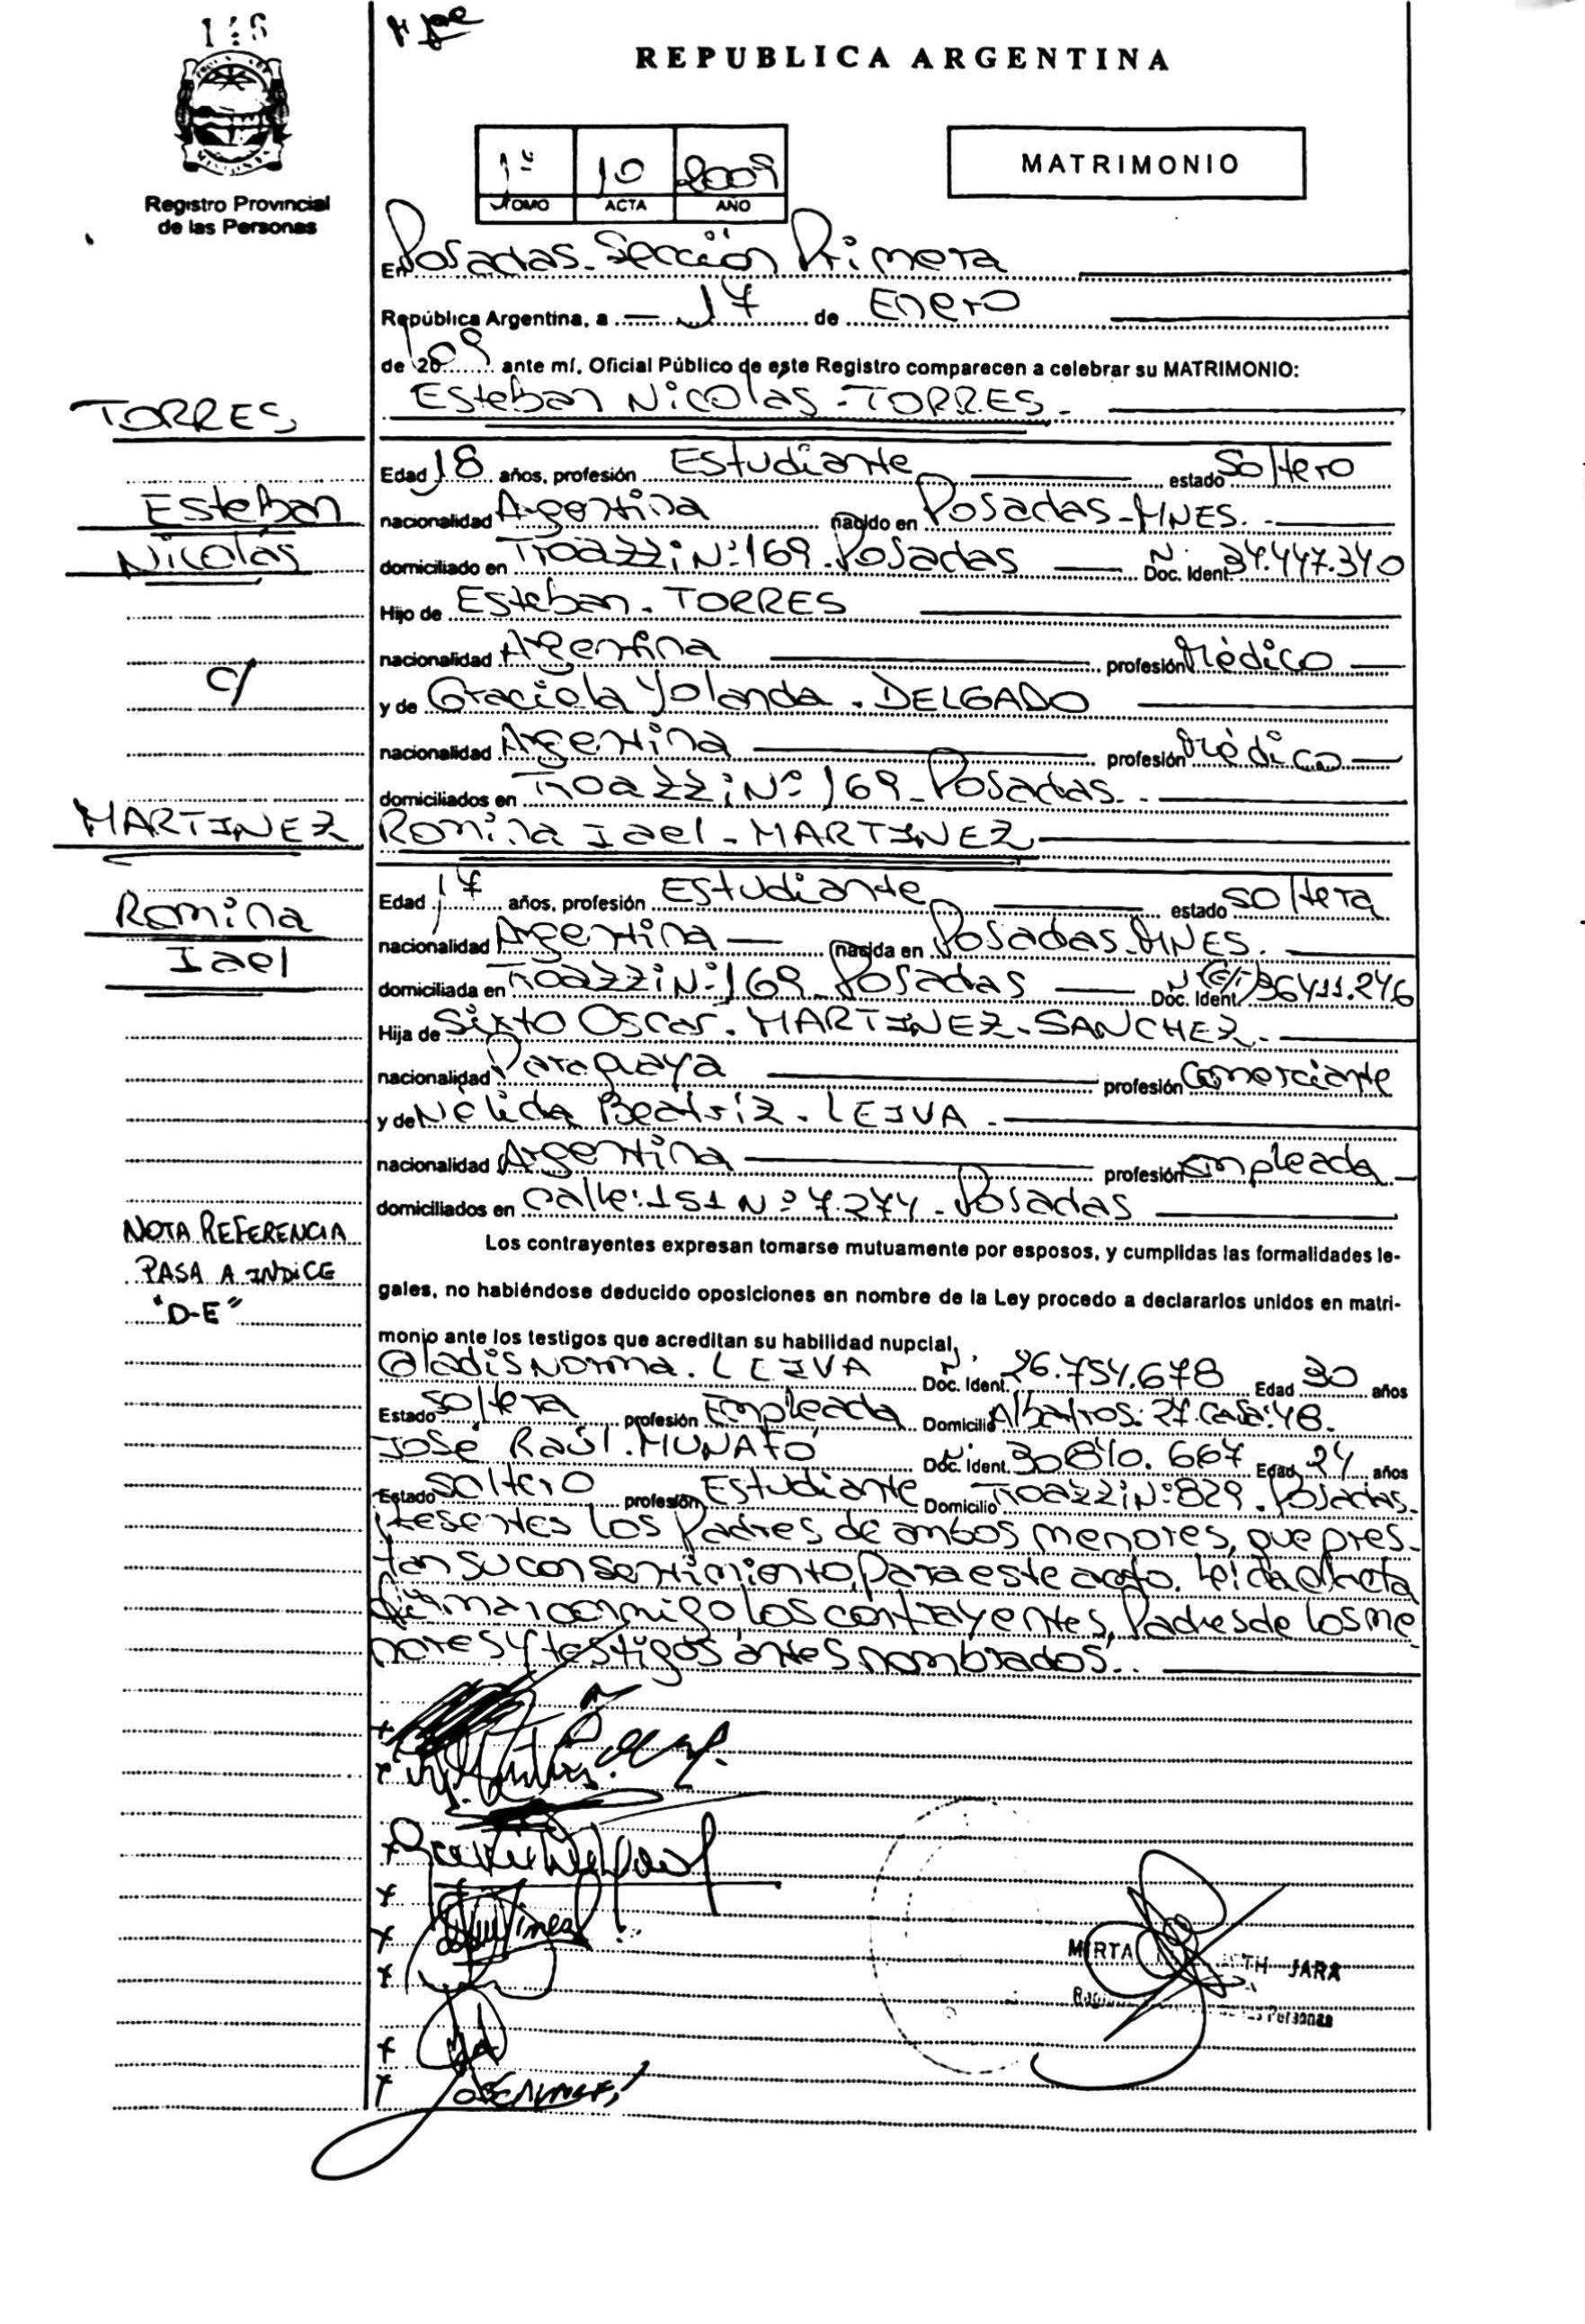 REPUBLICA ARGENTINA
Registro Provincial
de las Personas
1º 10 2009
TOMO ACTA AÑO
MATRIMONIO
En Posadas-Sección Primera
República Argentina, a 17 de Enero
de 2009 ante mí, Oficial Público de este Registro comparecen a celebrar su MATRIMONIO:
TORRES Esteban Nicolas-TORRES-
Edad 18 años, profesión Estudiante estado Soltero
Esteban nacionalidad Argentina nacido en Posadas-MNES.-
Nicolás domiciliado en N:169-Posadas Doc. Ident. N. 34.447.340
Hijo de Esteban-TORRES
nacionalidad Argentina profesión Médico
c/ y de Graciela Yolanda-DELGADO
nacionalidad Argentina profesión Médica
domiciliados en Nº 169-Posadas.-
MARTINEZ Romina Iael-MARTINEZ
Edad 17 años, profesión Estudiante estado soltera
Romina nacionalidad Argentina nacida en Posadas-MNES.
Iael domiciliada en N:169-Posadas Doc. Ident. 36411.246
Hija de Sixto Oscar-MARTINEZ-SANCHEZ-
nacionalidad Paraguaya profesión Comerciante
y de Nélida Beatriz-LEIVA-
nacionalidad Argentina profesión empleada
domiciliados en calle:151 Nº 7.274-Posadas
NOTA REFERENCIA
PASA A INDICE
"D-E"
Los contrayentes expresan tomarse mutuamente por esposos, y cumplidas las formalidades le-
gales, no habiéndose deducido oposiciones en nombre de la Ley procedo a declararlos unidos en matri-
monio ante los testigos que acreditan su habilidad nupcial,
Gladis Norma-LEIVA Doc. Ident. N. 26.754.678 Edad 30 años
Estado soltera profesión Empleada Domicilio Albatros: 27.Casa:48.
José Raúl-MUNAFÓ Doc. Ident. N. 30810.667 Edad 24 años
Estado soltero profesión Estudiante Domicilio N:829-Posadas-
Presentes los Padres de ambos menores, que pres-
tan su consentimiento, para este acto. Leída el Acta
firman conmigo, los contrayentes, Padres de los me
nores y testigos antes nombrados.-
MIRTA JARA
Personas